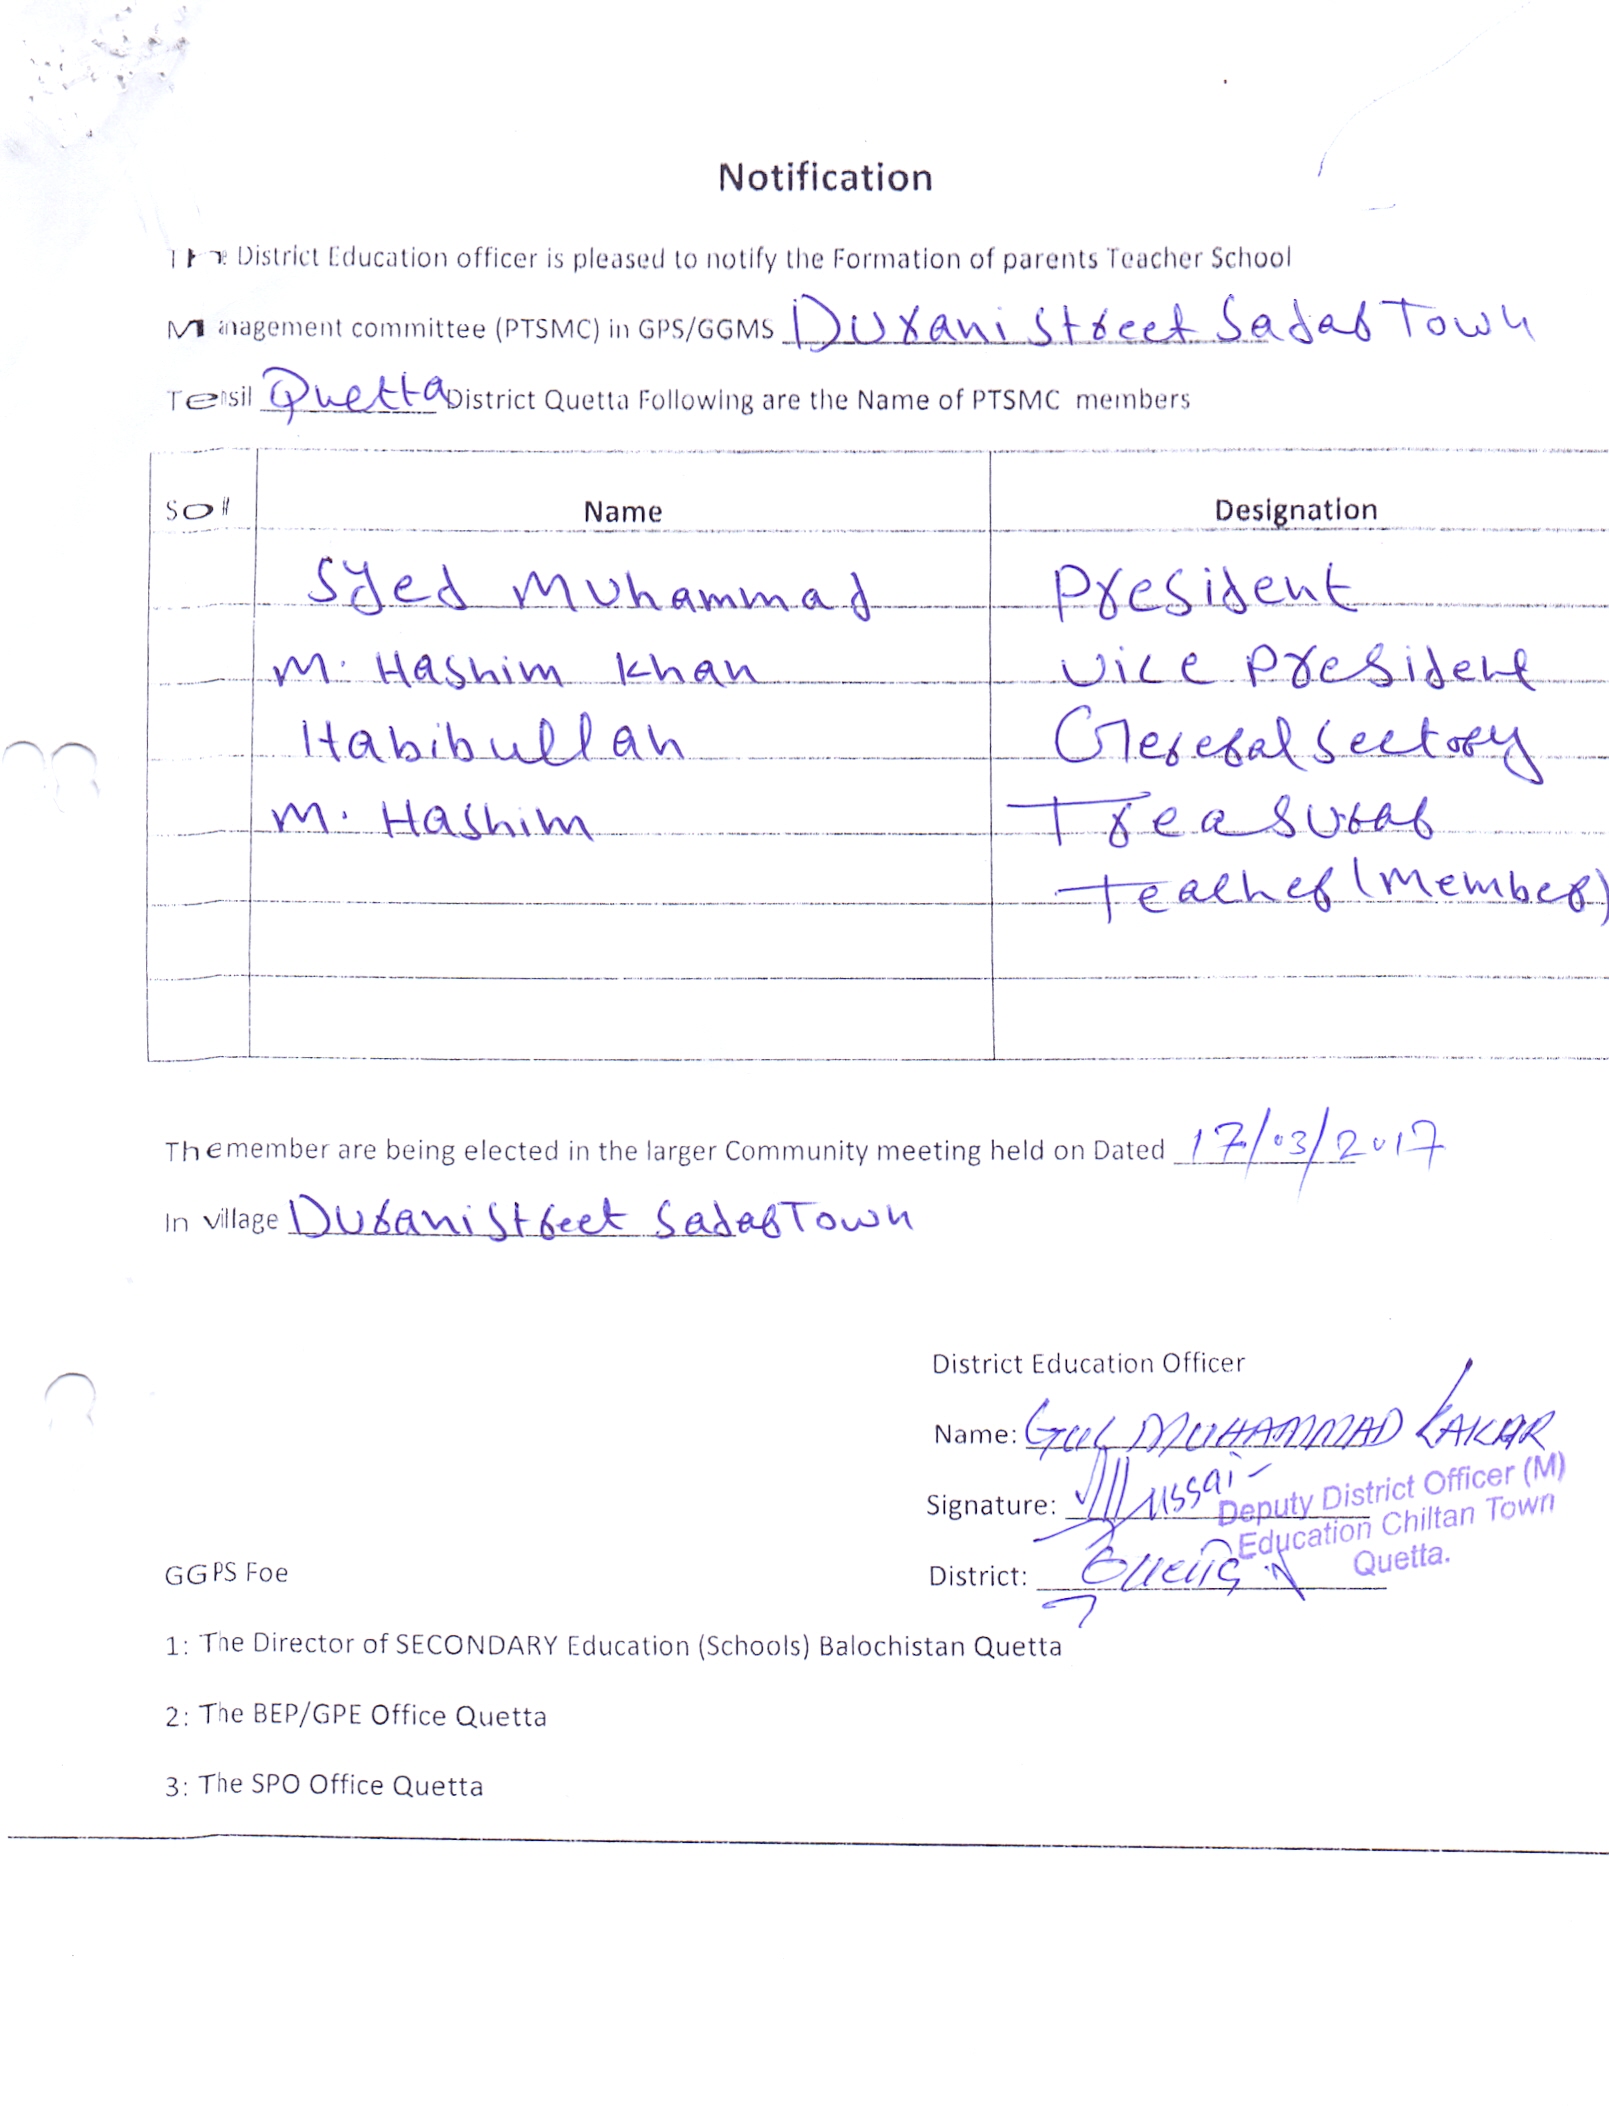 Notification
The District Education officer is pleased to notify the Formation of parents Teacher School
Management committee (PTSMC) in GPS/GGMS Durani Street Sadar Town
Tehsil Quetta District Quetta Following are the Name of PTSMC members
So# Name Designation
Syed Muhammad President
M. Hashim Khan Vice President
Habibullah General Sectory
M. Hashim Treasurar
Teacher (Member)
The member are being elected in the larger Community meeting held on Dated 17/03/2017
In village Durani Street Sadar Town
District Education Officer
Name: GUL MUHAMMAD KAKAR
Signature:
Deputy District Officer (M)
Education Chiltan Town
Quetta.
District: Quetta
GGPS Foe
1: The Director of SECONDARY Education (Schools) Balochistan Quetta
2: The BEP/GPE Office Quetta
3: The SPO Office Quetta